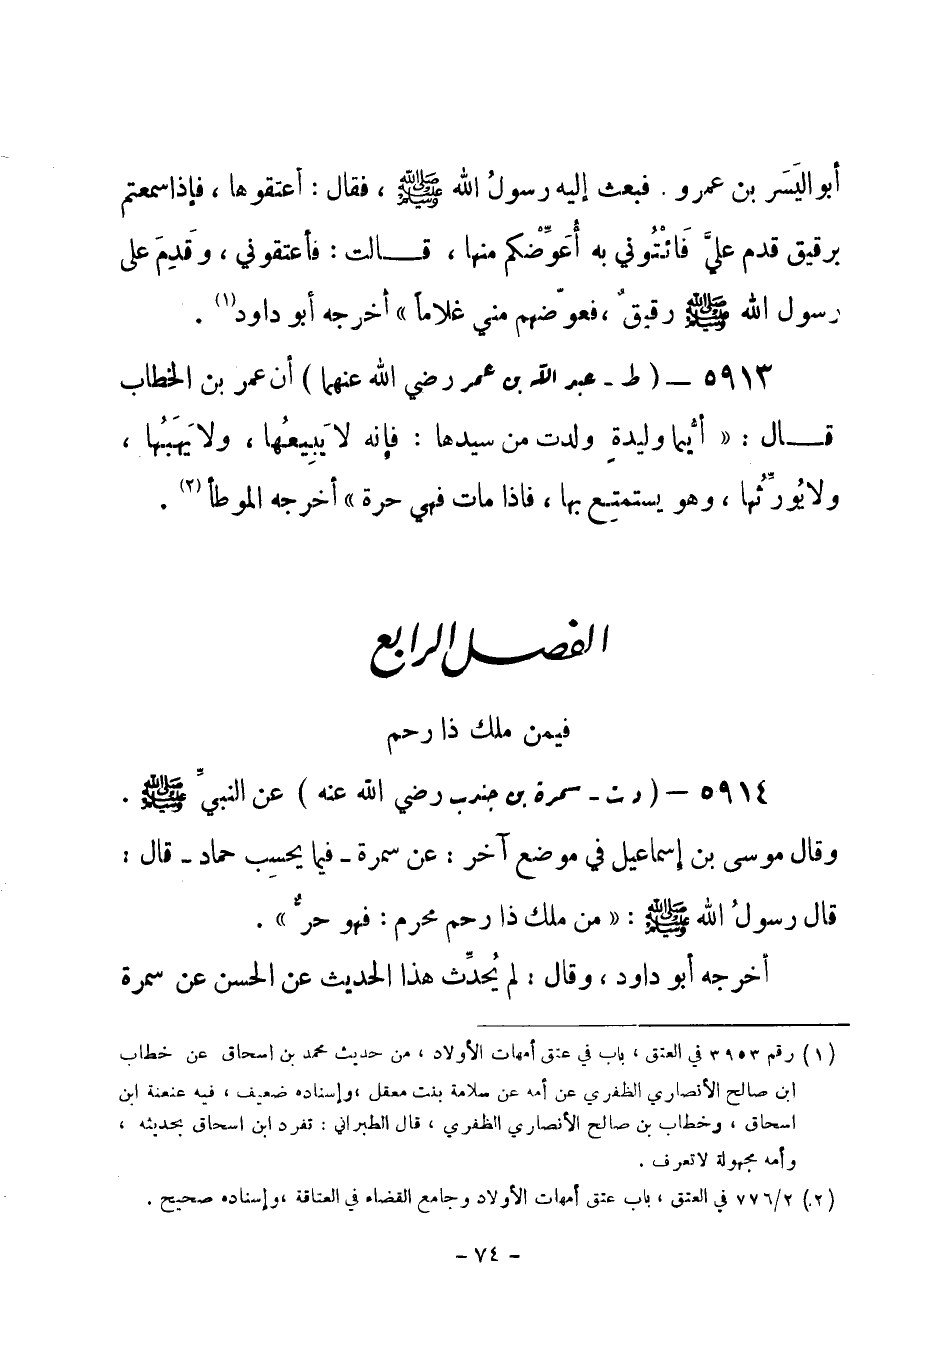 أبو اليَسَر بن عمرو . فبعث إليه رسولُ الله ﷺ ، فقال : أعتقوها ، فإذا سمعتم
برقيق قدم عليَّ فَائْتُوني به أُعَوِّضْكم منها ، قـــالت : فأعتقوني ، وقَدِمَ على
رسول الله ﷺ رقيقٌ ، فعوّضهم مني غلاماً » أخرجه أبو داود(١) .
٥٩١٣ – ( ط - عبد الله بن عمر رضي الله عنهما ) أن عمر بن الخطاب
قـــال : « أيُّما وليدةٍ ولدت من سيدها : فإنه لا يَبِيعُها ، ولا يَهَبُها ،
ولا يُورِّثُها ، وهو يستمتِع بها ، فاذا مات فهي حرة » أخرجه الموطأ(٢) .
الفصل الرابع
فيمن ملك ذا رحم
٥٩١٤ – ( د ت - سمرة بن جندب رضي الله عنه ) عن النبيِّ ﷺ .
وقال موسى بن إسماعيل في موضع آخر : عن سمرة - فيما يحسِب حماد - قال :
قال رسولُ الله ﷺ : « من ملك ذا رحم محرم : فهو حرٌّ » .
أخرجه أبو داود ، وقال : لم يُحدِّث هذا الحديث عن الحسن عن سمرة
(١) رقم ٣٩٥٣ في العتق ، باب في عتق أمهات الأولاد ، من حديث محمد بن اسحاق عن خطاب
ابن صالح الأنصاري الظفري عن أمه عن سلامة بنت معقل ، وإسناده ضعيف ، فيه عنعنة ابن
اسحاق ، وخطاب بن صالح الأنصاري الظفري ، قال الطبراني : تفرد ابن اسحاق بحديثه ،
وأمه مجهولة لاتعرف .
(٢) ٧٧٦/٢ في العتق ، باب عتق أمهات الأولاد وجامع القضاء في العتاقة ، وإسناده صحيح .
- ٧٤ -